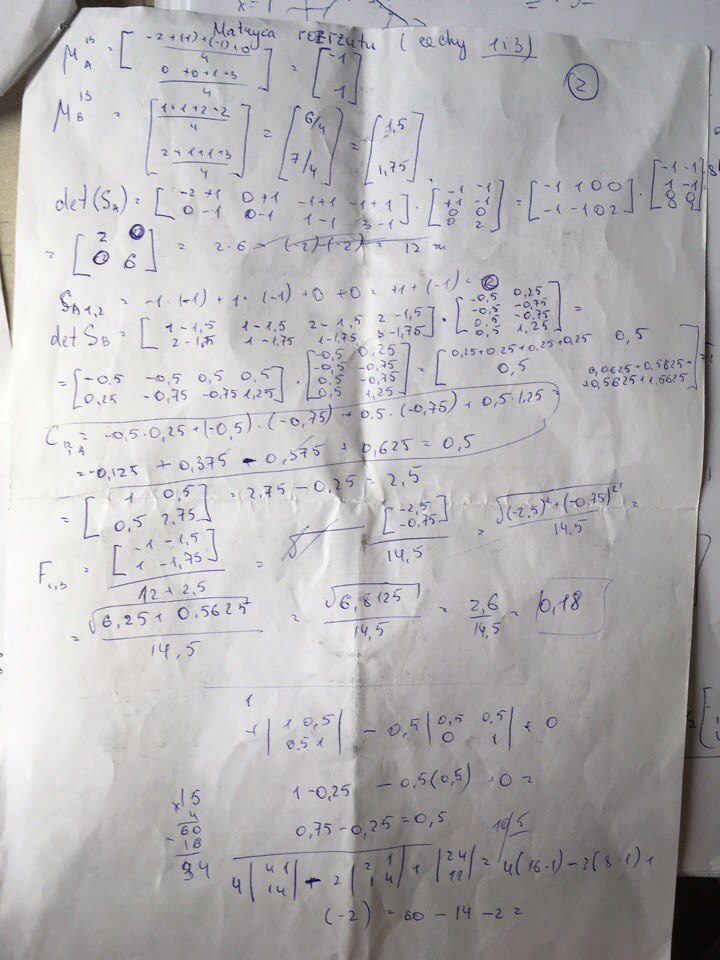 Matryca rozrzutu (cechy 1i3)
②
μ_A^13 = [ (-2+(-1)+(-1)+0)/4 ; (0+0+1+3)/4 ] = [ -1 ; 1 ]
μ_B^13 = [ (1+1+2+2)/4 ; (2+1+1+3)/4 ] = [ 6/4 ; 7/4 ] = [ 1,5 ; 1,75 ]
det(S_A) = [ -2+1 0+1 -1+1 -1+1 ; 0-1 0-1 1-1 3-1 ] · [ -1 -1 ; +1 -1 ; 0 0 ; 0 2 ] = [ -1 1 0 0 ; -1 -1 0 2 ] · [ -1 -1 ; 1 -1 ; 0 0 ; 0 2 ]
= [ 2 0 ; 0 6 ] = 2·6 - (-2)·(-2) = 12
S_A1,2 = -1·(-1) + 1·(-1) + 0 + 0 = +1+(-1) = 0
det S_B = [ 1-1,5 1-1,5 2-1,5 2-1,5 ; 2-1,75 1-1,75 1-1,75 3-1,75 ] · [ -0,5 0,25 ; -0,5 -0,75 ; 0,5 -0,75 ; 0,5 1,25 ] =
= [ -0,5 -0,5 0,5 0,5 ; 0,25 -0,75 -0,75 1,25 ] · [ -0,5 0,25 ; -0,5 -0,75 ; 0,5 -0,75 ; 0,5 1,25 ] = [ 0,25+0,25+0,25+0,25 0,5 ; 0,5 0,0625+0,5625+ +0,5625+1,5625 ] =
= -0,5·0,25 + (-0,5)·(-0,75) + 0,5·(-0,75) + 0,5·1,25 =
= -0,125 + 0,375 - 0,375 + 0,625 = 0,5
= [ 1 0,5 ; 0,5 2,75 ] = 2,75 - 0,25 = 2,5
F_1,3 = [ -1 -1,5 ; 1 -1,75 ] / (12+2,5) = [ -2,5 ; -0,75 ] / 14,5 = √((-2,5)²+(-0,75)²) / 14,5 =
= √(6,25+0,5625) / 14,5 = √6,8125 / 14,5 = 2,6 / 14,5 = 0,18
1
+| 1 0,5 ; 0,5 1 | - 0,5 | 0,5 0,5 ; 0 1 | + 0
1-0,25 - 0,5(0,5) + 0 =
0,75 - 0,25 = 0,5
15
4
60
16
4| 4 1 ; 1 4 | - 2 | 2 1 ; 1 4 | + | 2 4 ; 1 1 | = 4(16-1) - 2(8-1) +
(-2) = 60 - 14 - 2 =